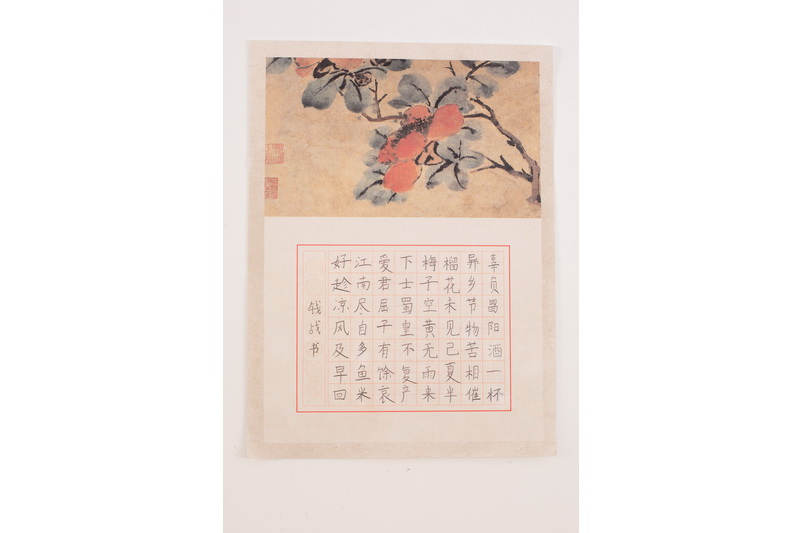 辜负昌阳酒一杯
异乡节物苦相催
榴花未见已夏半
梅子空黄无雨来
下士蜀皇不复产
爱君屈子有馀哀
江南尽自多鱼米
好趁凉风及早回
钱战书